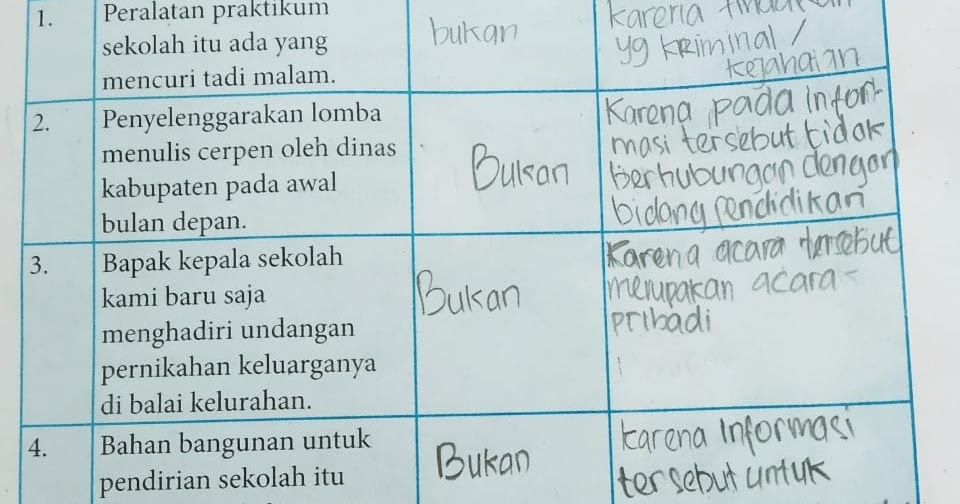 1.
Peralatan praktikum
sekolah itu ada yang
mencuri tadi malam.
bukan
karena
yg kriminal /
kejahaian
2.
Penyelenggarakan lomba
menulis cerpen oleh dinas
kabupaten pada awal
bulan depan.
Bukan
Karena pada infor-
masi tersebut tidak
berhubungan dengan
bidang pendidikan
3.
Bapak kepala sekolah
kami baru saja
menghadiri undangan
pernikahan keluarganya
di balai kelurahan.
Bukan
Karena acara tersebut
merupakan acara
pribadi
4.
Bahan bangunan untuk
pendirian sekolah itu
Bukan
karena informasi
tersebut untuk